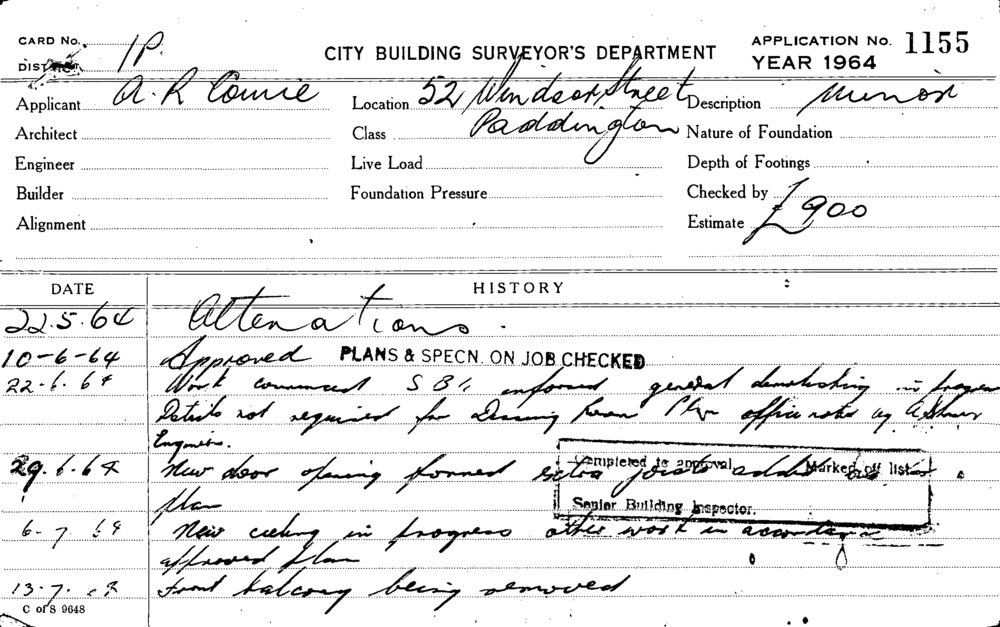 CARD No. 1P. CITY BUILDING SURVEYOR'S DEPARTMENT APPLICATION No. 1155
DISTRICT YEAR 1964
Applicant A. R Cowie Location 52 Windsor Street Description Minor
Architect Class Paddington Nature of Foundation
Engineer Live Load Depth of Footings
Builder Foundation Pressure Checked by
Alignment Estimate £900
DATE HISTORY
22.5.64 Alterations.
10-6-64 Approved PLANS & SPECN. ON JOB CHECKED
22.6.64 Work commenced informed general demolishing in progress
Details not required for Dressing Room office note by
Engineer.
29.6.64 New door opening formed extra joists added
Completed to approval Marked off list
plan
Senior Building Inspector.
6-7 64 New ceiling in progress other work in accordance
approved plan
13.7. Front balcony being removed
C of S 9648